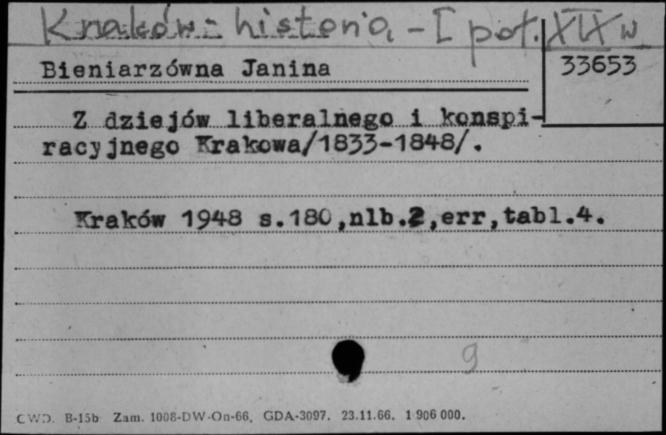 Kraków - historia - I poł. XIX w
Bieniarzówna Janina
33653
Z dziejów liberalnego i konspi-
racyjnego Krakowa/1833-1848/.
Kraków 1948 s.180,nlb.2,err,tabl.4.
9
CWD. B-15b Zam. 1008-DW-On-66, GDA-3097. 23.11.66. 1 906 000.